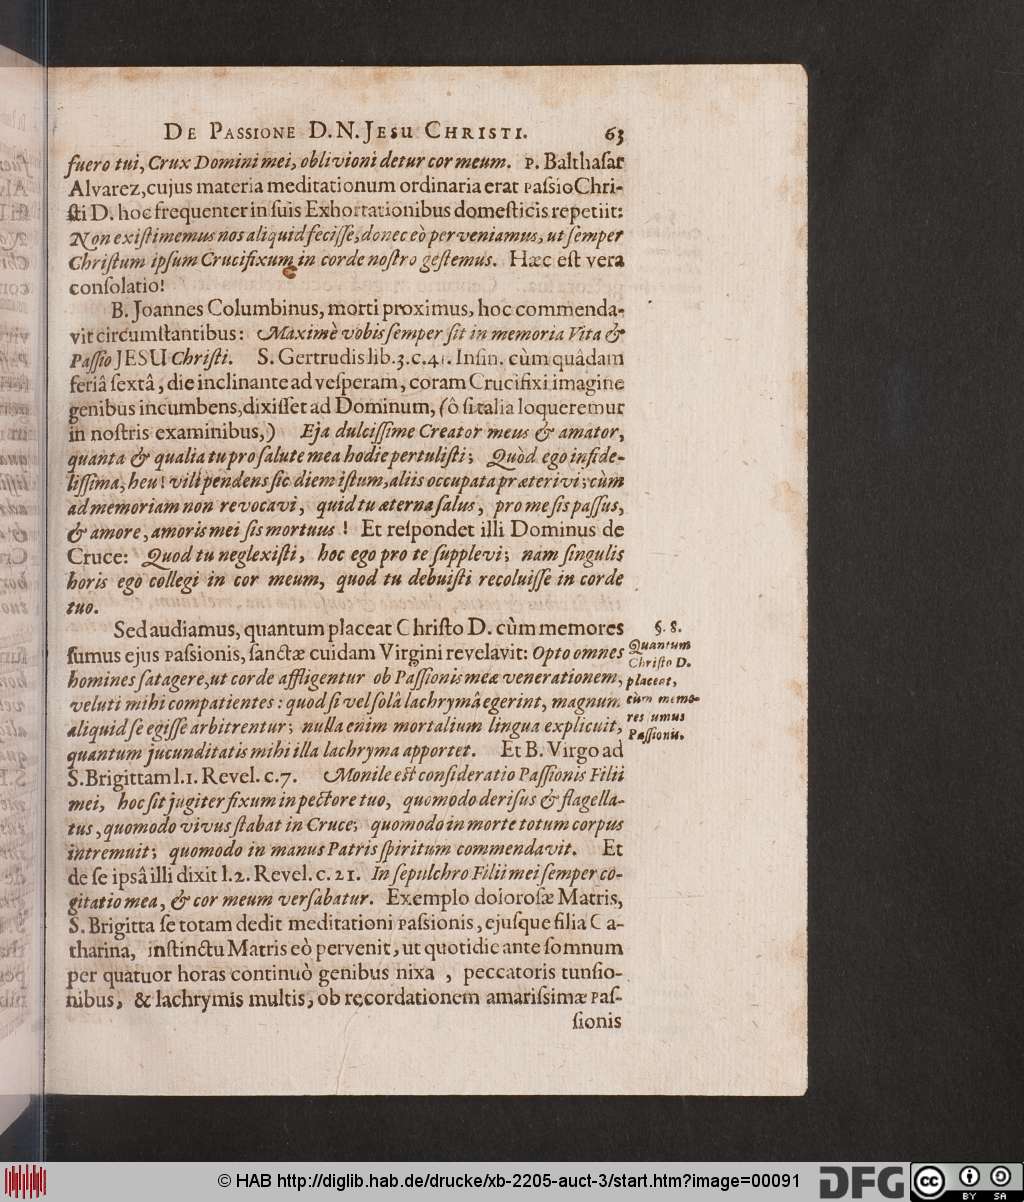 DE PASSIONE D.N. JESU CHRISTI. 63
fuero tui, Crux Domini mei, oblivioni detur cor meum. P. Balthaſar
Alvarez, cujus materia meditationum ordinaria erat Paſsio Chri-
ſti D. hoc frequenter in ſuis Exhortationibus domeſticis repetiit:
Non exiſtimemus nos aliquid feciſſe, donec eò perveniamus, ut ſemper
Chriſtum ipſum Crucifixum in corde noſtro geſtemus. Hæc eſt vera
conſolatio!
B. Joannes Columbinus, morti proximus, hoc commenda-
vit circumſtantibus: Maximè vobis ſemper ſit in memoria Vita &
Paſſio JESU Chriſti. S. Gertrudis lib. 3. c. 41. Inſin. cùm quâdam
feriâ ſextâ, die inclinante ad veſperam, coram Crucifixi imagine
genibus incumbens, dixiſſet ad Dominum, (ô ſi talia loqueremur
in noſtris examinibus,) Eja dulciſſime Creator meus & amator,
quanta & qualia tu pro ſalute mea hodie pertuliſti; Quòd ego infide-
liſſima, heu! vilipendens ſic diem iſtum, aliis occupata præterivi; cùm
ad memoriam non revocavi, quid tu æterna ſalus, pro me ſis paſſus,
& amore, amoris mei ſis mortuus! Et reſpondet illi Dominus de
Cruce: Quod tu neglexiſti, hoc ego pro te ſupplevi; nam ſingulis
horis ego collegi in cor meum, quod tu debuiſti recoluiſſe in corde
tuo.
Sed audiamus, quantum placeat Chriſto D. cùm memores
ſumus ejus Paſsionis, ſanctæ cuidam Virgini revelavit: Opto omnes
homines ſatagere, ut corde affligentur ob Paſſionis meæ venerationem,
veluti mihi compatientes: quod ſi vel ſolâ lachrymâ egerint, magnum
aliquid ſe egiſſe arbitrentur; nulla enim mortalium lingua explicuit,
quantum jucunditatis mihi illa lachryma apportet. Et B. Virgo ad
S. Brigittam l. 1. Revel. c. 7. Monile eſt conſideratio Paſſionis Filii
mei, hoc ſit jugiter fixum in pectore tuo, quomodo deriſus & flagella-
tus, quomodo vivus ſtabat in Cruce; quomodo in morte totum corpus
intremuit; quomodo in manus Patris ſpiritum commendavit. Et
de ſe ipsâ illi dixit l. 2. Revel. c. 21. In ſepulchro Filii mei ſemper co-
gitatio mea, & cor meum verſabatur. Exemplo doloroſæ Matris,
S. Brigitta ſe totam dedit meditationi Paſsionis, ejuſque filia Ca-
tharina, inſtinctu Matris eò pervenit, ut quotidie ante ſomnum
per quatuor horas continuò genibus nixa, peccatoris tunſio-
nibus, & lachrymis multis, ob recordationem amariſsimæ Paſ-
ſionis
§. 8.
Quantum
Chriſto D.
placeat,
cùm memo-
res ſumus
Paſſionis.
© HAB http://diglib.hab.de/drucke/xb-2205-auct-3/start.htm?image=00091
DFG
cc
BY SA